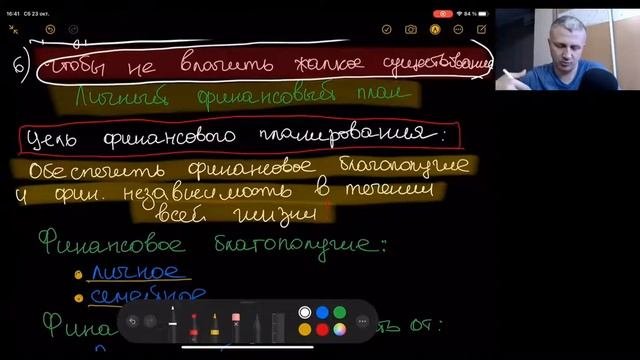 16:41 Сб 23 окт.
84 %
6) Чтобы не влачить жалкое существование
Личный финансовый план
Цель финансового планирования:
Обеспечить финансовое благополучие
и фин. независимость в течении
всей жизни
Финансовое благополучие:
• личное
• семейное
Фина
ть от: